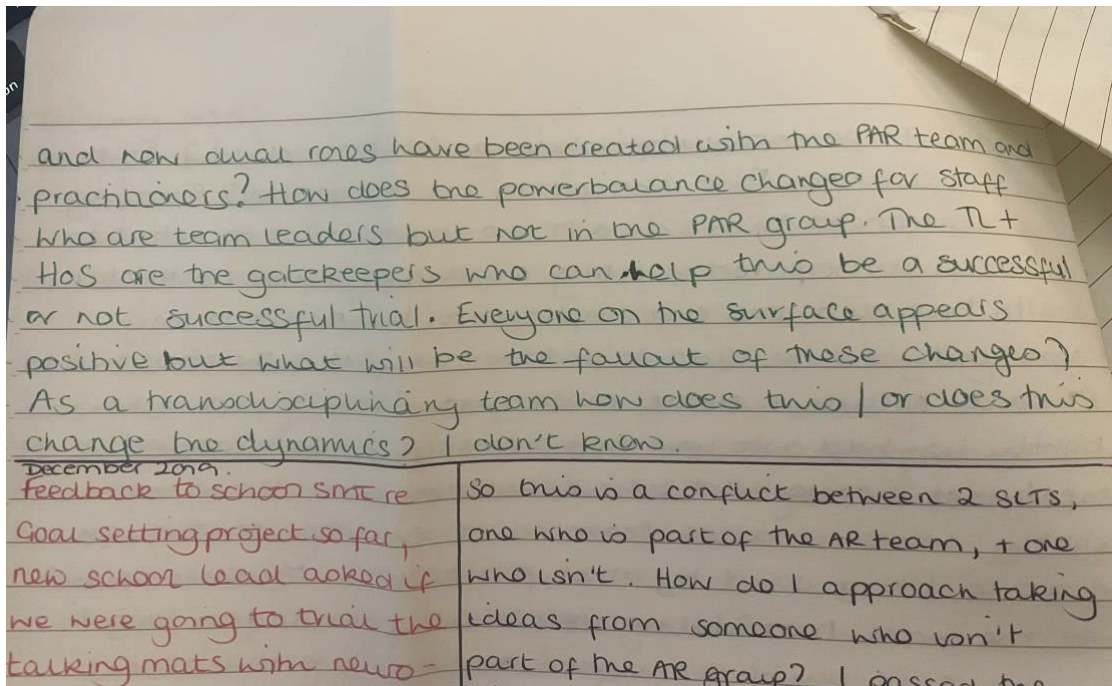 on
and how dual roles have been created with the PAR team and
practitioners? How does the powerbalance changed for staff
who are team leaders but not in the PAR group. The TL +
HoS are the gatekeepers who can help this be a successful
or not successful trial. Everyone on the surface appears
positive but what will be the fallout of these changes?
As a transdisciplinary team how does this / or does this
change the dynamics? I don't know.
December 2019.
feedback to school SMT re
Goal setting project so far,
new school lead asked if
we were going to trial the
talking mats with neuro-
So this is a conflict between 2 SLTS,
one who is part of the AR team, + one
who isn't. How do I approach taking
ideas from someone who isn't
part of the AR group? I passed the